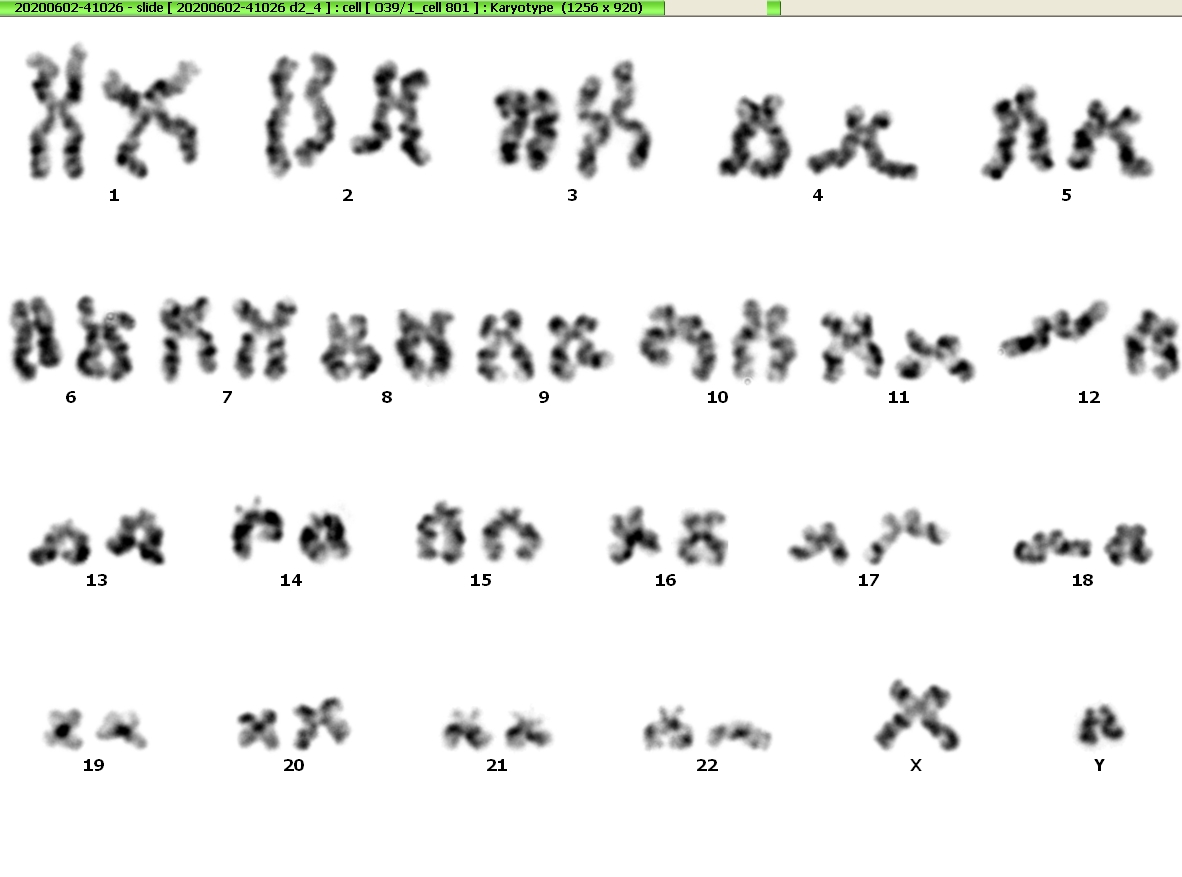 20200602-41026 - slide [ 20200602-41026 d2_4 ] : cell [ 039/1_cell 801 ] : Karyotype (1256 x 920)
1 2 3 4 5
6 7 8 9 10 11 12
13 14 15 16 17 18
19 20 21 22 X Y